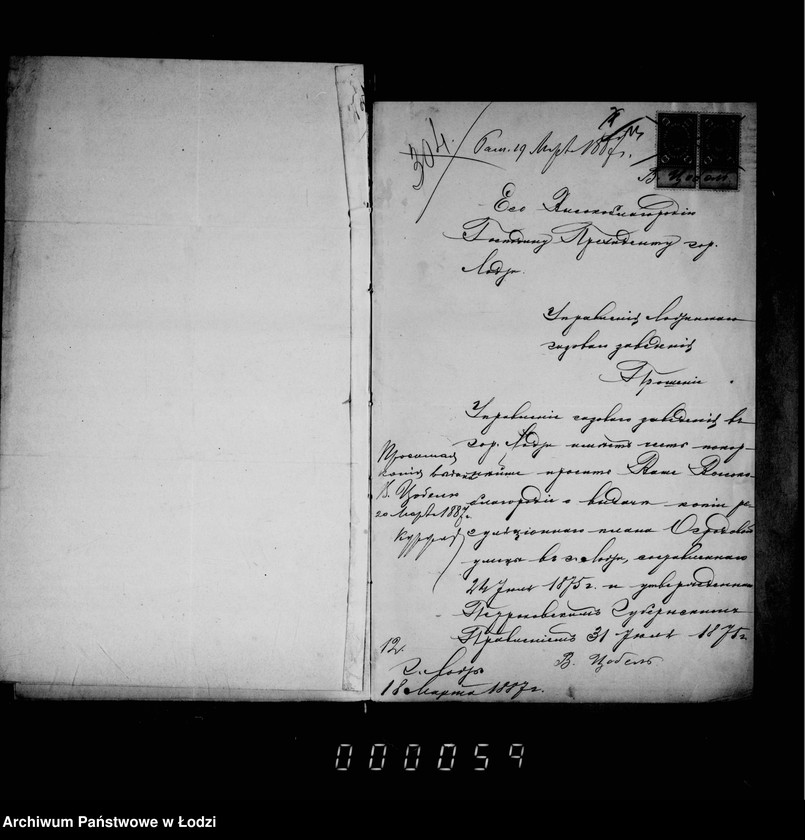 304.
Пол. 19 Марта 1887 г.
В. Цобель
Его Высокоблагородию
Господину Президенту гор.
Лодзи.
Управления Лодзинского
газового заведения
Прошение
Управление газового заведения в
гор. Лодзи имеет честь покор-
нейше просить Ваше Высоко-
благородие о выдаче копии ре-
гуляционного плана Огродовой
улицы в г. Лодзи, составленного
24 Июня 1875 г. и утвержденного
Петроковским Губернским
Правлением 31 Июля 1875 г.
В. Цобель
копию
В. Цобель
20 Марта 1887 г.
12.
г. Лодзь
18 Марта 1887 г.
000059
Archiwum Państwowe w Łodzi